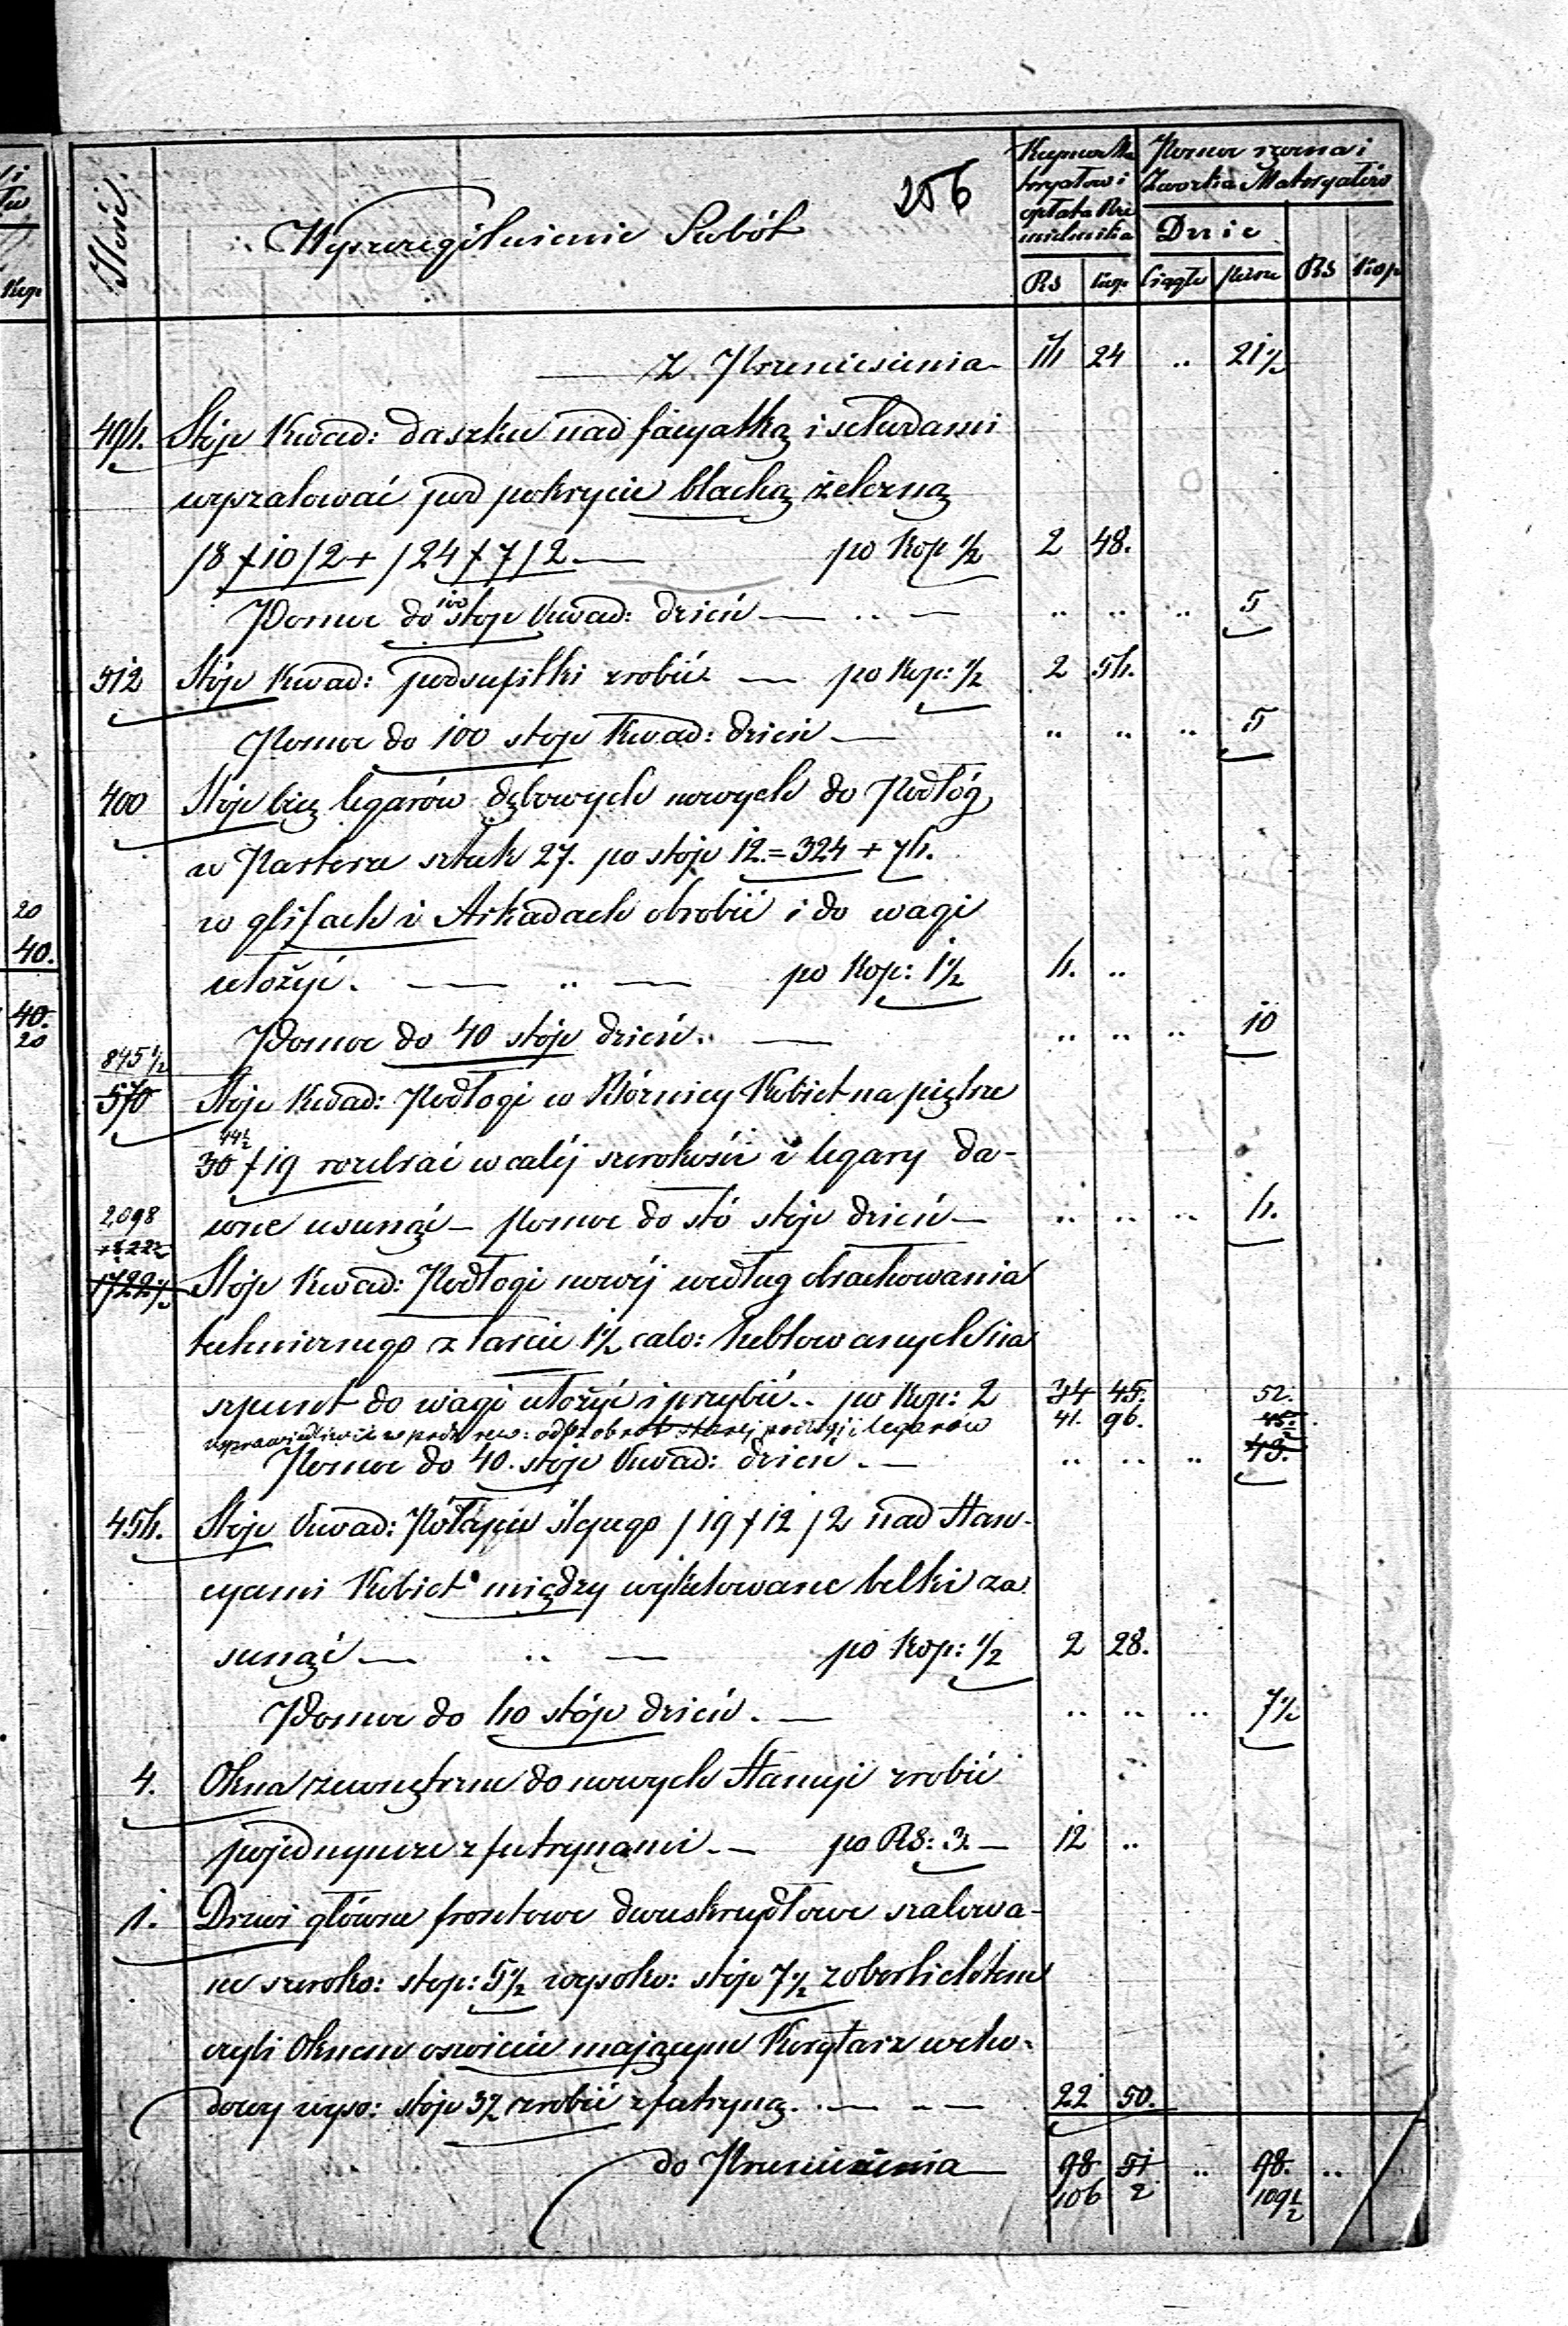 256
Ilość
Wyszczególnienie Robót
Kupno Ma
teryałów i
opłata Rze
mieślnika
Pomoc ręczna i
Zwózka Materyałów
Dnie
RS kop. ciągłe piesze RS Kop.
Z Przeniesienia 16 24 .. 21½
496. Stóp Kwad: daszku nad facyatką i schodami
wyszalować pod pokrycie blachą żelazną
/8 × 10/2 + /24 × 7/2 — po Kop ½ 2 48.
100
Pomoc do stóp kwad: dzień — .. — .. .. .. 5
512 Stóp kwad: podsufitki zrobić — po Kop: ½ 2 56.
Pomoc do 100 stóp kwad: dzień — .. .. .. 5
400 Stóp bież legarów dębowych nowych do Podłóg
w Parterze sztuk 27. po stóp 12. = 324 + 76.
w glifach i Arkadach obrobić i do wagi
ułożyć. — .. — po Kop: 1½ 6. ..
Pomoc do 40 stóp dzień. — .. .. .. 10
845½
570 Stóp Kwad: Podłogi w Bóżnicy Kobiet na piętrze
44½
30 × 19 rozebrać w całéj szerokości i legary da-
2098 wne usunąć — Pomoc do stó stóp dzień — .. .. .. 6.
1722½ Stóp Kwad: Podłogi nowéj według obrachowania
technicznego z tarcic 1½ calo: heblowanych na
szpunt do wagi ułożyć i przybić .. po Kop: 2 34 45. 52.
41. 96. 45.
Pomoc do 40. stóp kwad: dzień. — .. .. .. 43.
456. Stóp kwad: Pułapu ślepego /19 × 12/2 nad Stan-
cyami Kobiet między wyżłobowane belki za
sunąć — .. — po Kop: ½ 2 28.
Pomoc do 60 stóp dzień. — .. .. .. 7½
4. Okna zewnętrzne do nowych Stancyi zrobić
pojedyncze z futrynami. — po RS: 3 — 12 ..
1. Drzwi główne frontowe dwuskrzydłowe szalowa-
ne szeroko: stop: 5½ wysoko: stóp 7½ z oberlichtem
czyli Oknem oświecić mającym Korytarz wcho-
dowy wyso: stóp 3½ zrobić z futryną. . — .. — 22 50.
do Przeniesienia — 98 51 .. 98. ..
106 2 109½
20
40.
40.
20